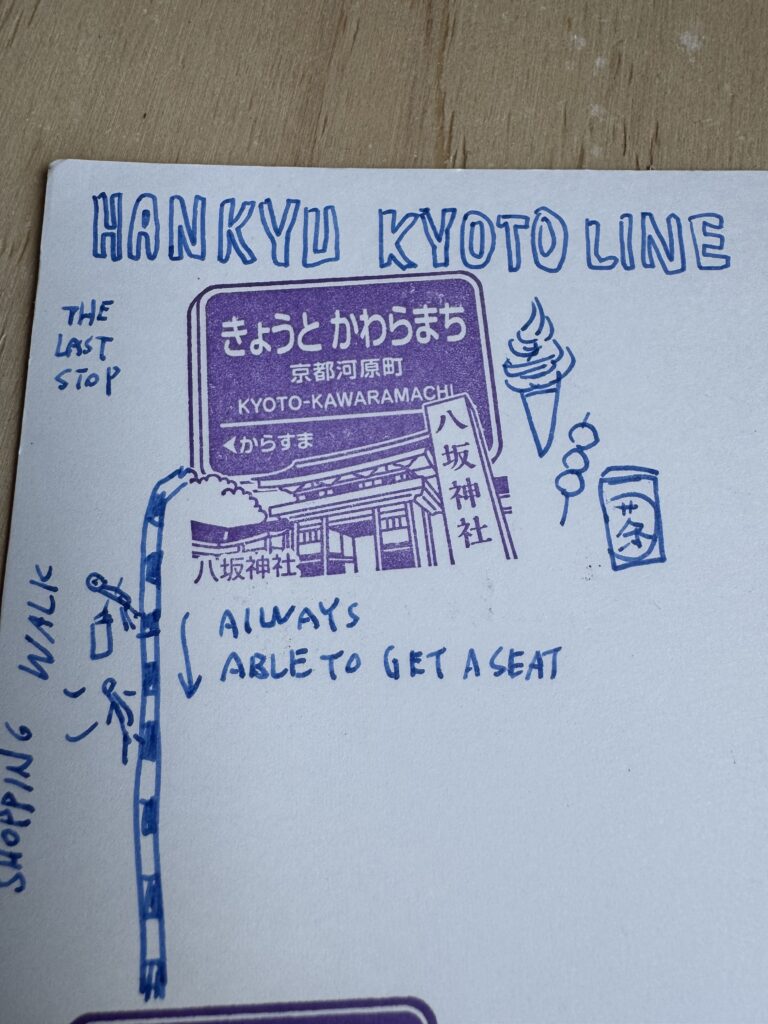 HANKYU KYOTO LINE
THE
LAST
STOP
きょうと かわらまち
京都河原町
KYOTO-KAWARAMACHI
◀からすま
八坂神社
八坂神社
茶
SHOPPING WALK
ALWAYS
ABLE TO GET A SEAT